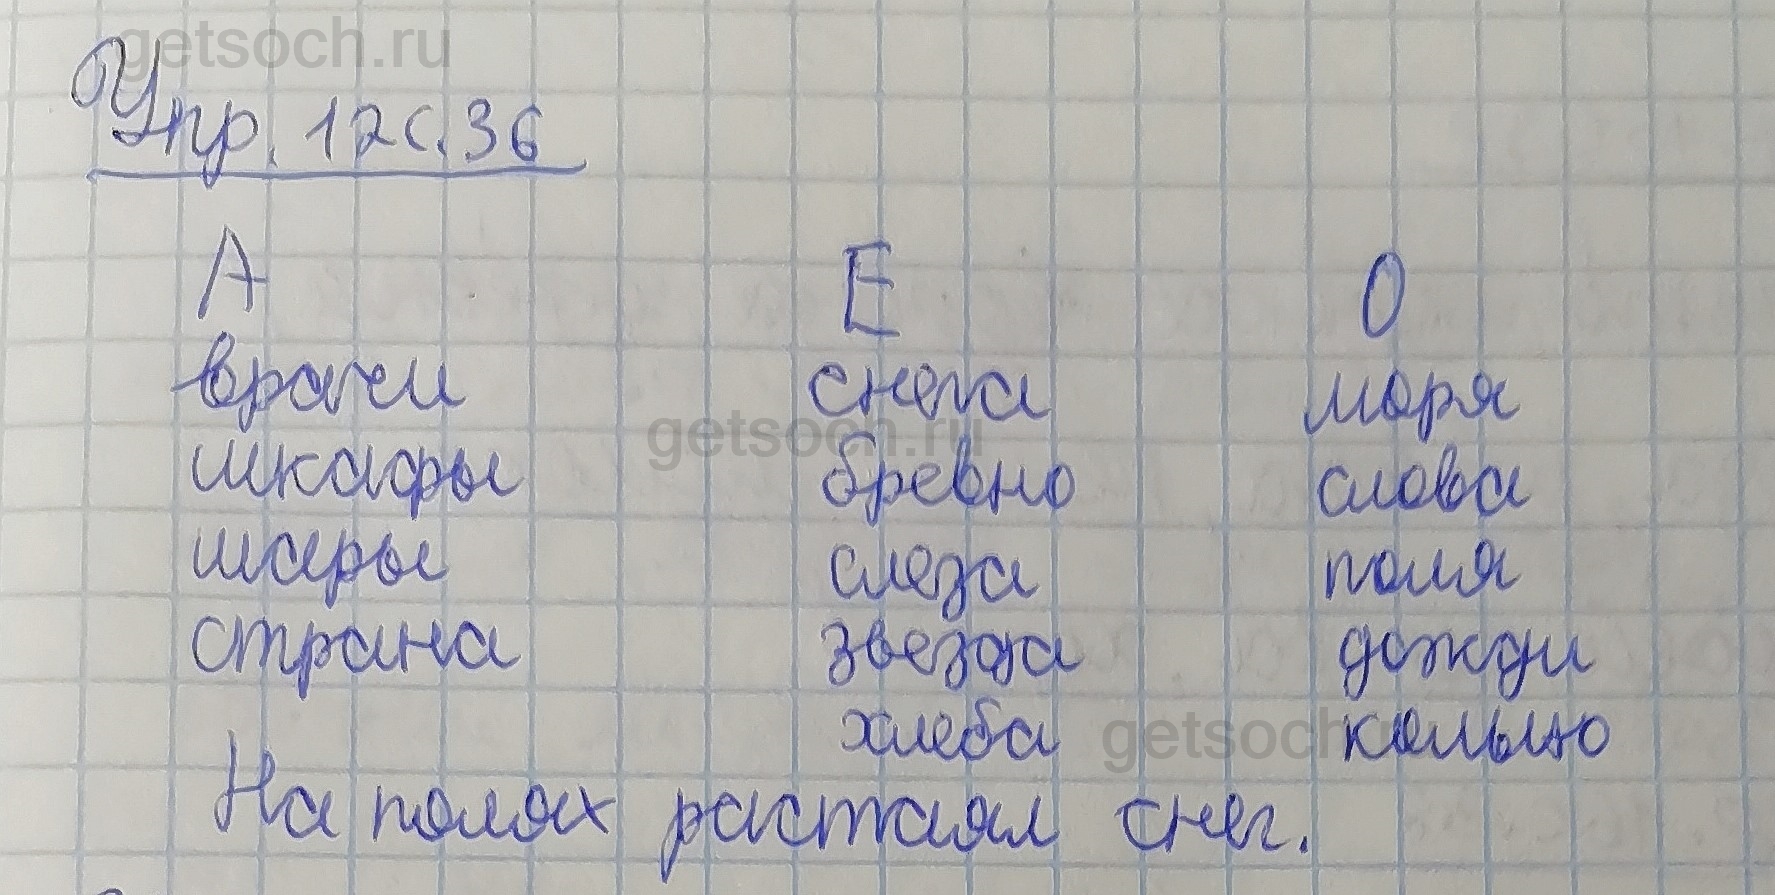 getsoch.ru
Упр. 12 с. 36
А Е О
врачи снега моря
шкафы бревно слова
getsoch.ru
шары слеза поля
страна звезда дожди
хлеба кольцо
getsoch
На полях растаял снег.